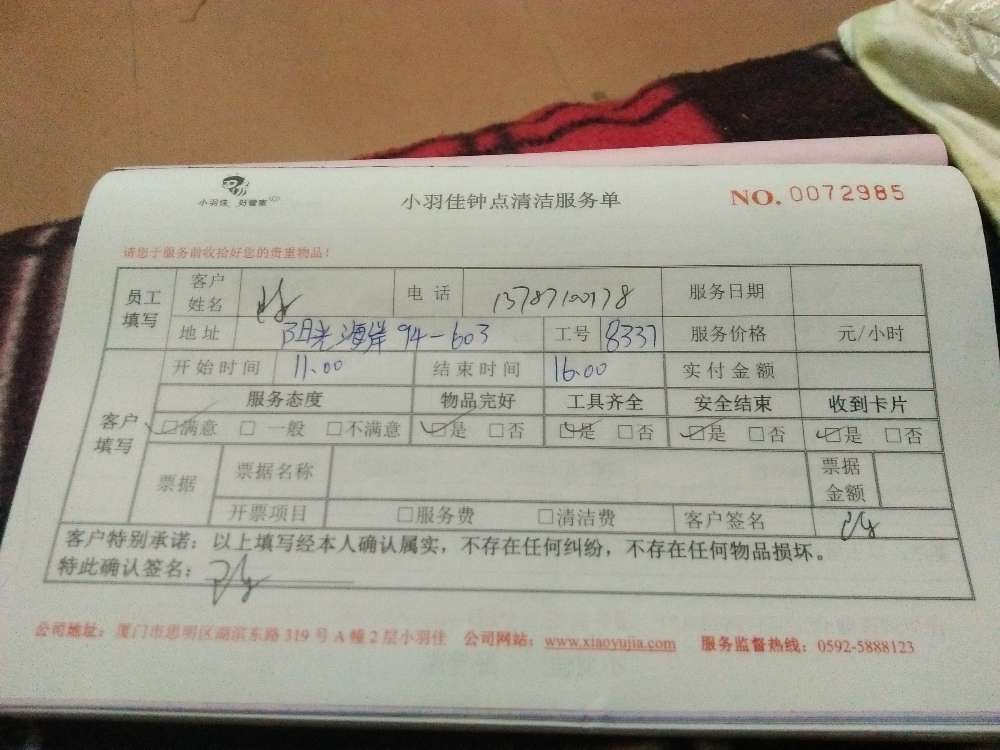 小羽佳 好管家
小羽佳钟点清洁服务单
NO. 0072985
请您于服务前收拾好您的贵重物品！
员工填写 客户姓名 电话 服务日期
地址 阳光海岸 94-603 工号 8337 服务价格 元/小时
客户填写 开始时间 11.00 结束时间 16.00 实付金额
服务态度 物品完好 工具齐全 安全结束 收到卡片
☑满意 □一般 □不满意 ☑是 □否 ☑是 □否 ☑是 □否 ☑是 □否
票据 票据名称 票据金额
开票项目 □服务费 □清洁费 客户签名
客户特别承诺：以上填写经本人确认属实，不存在任何纠纷，不存在任何物品损坏。
特此确认签名：
公司地址：厦门市思明区湖滨东路 319 号 A 幢 2 层小羽佳 公司网站：www.xiaoyujia.com 服务监督热线：0592-5888123